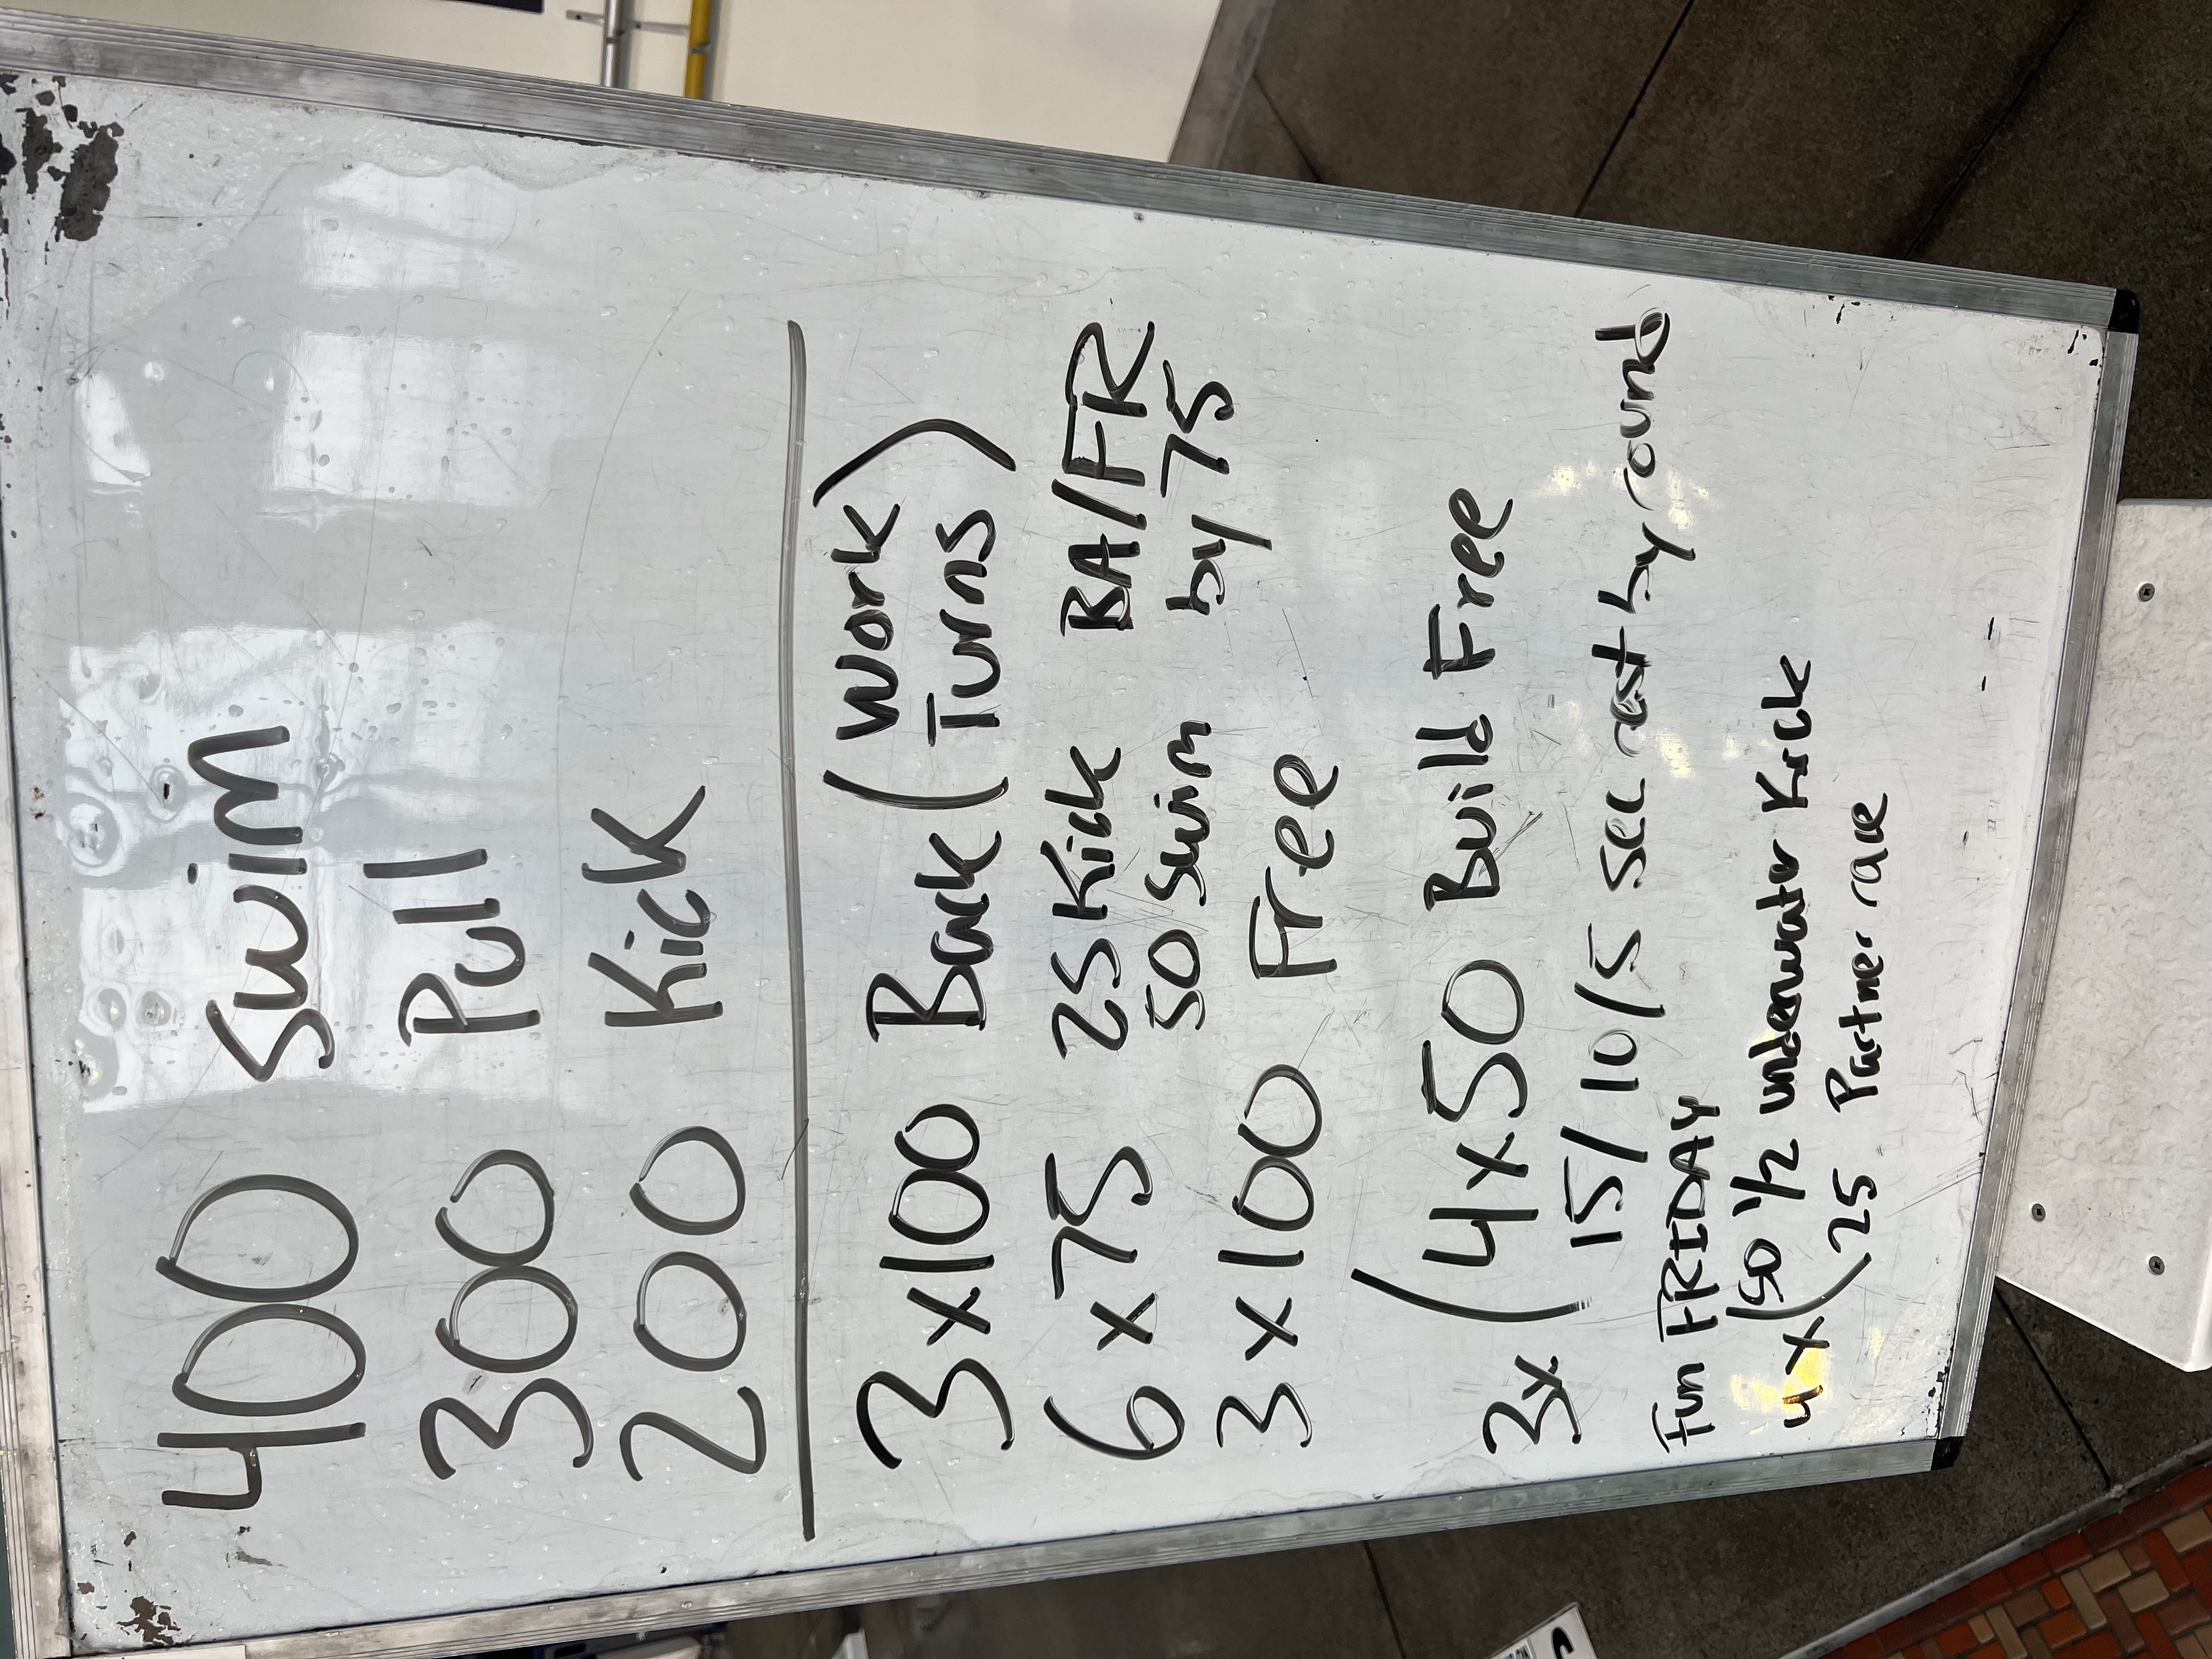 400 Swim
300 Pull
200 Kick
3x100 Back (Work
Turns)
6x75 25 Kick BA/FR
50 Swim by 75
3x100 Free
3x (4x50 Build Free
15/10/5 sec rest by round
Fun FRIDAY
4x(50 1/2 underwater Kick
25 Partner race